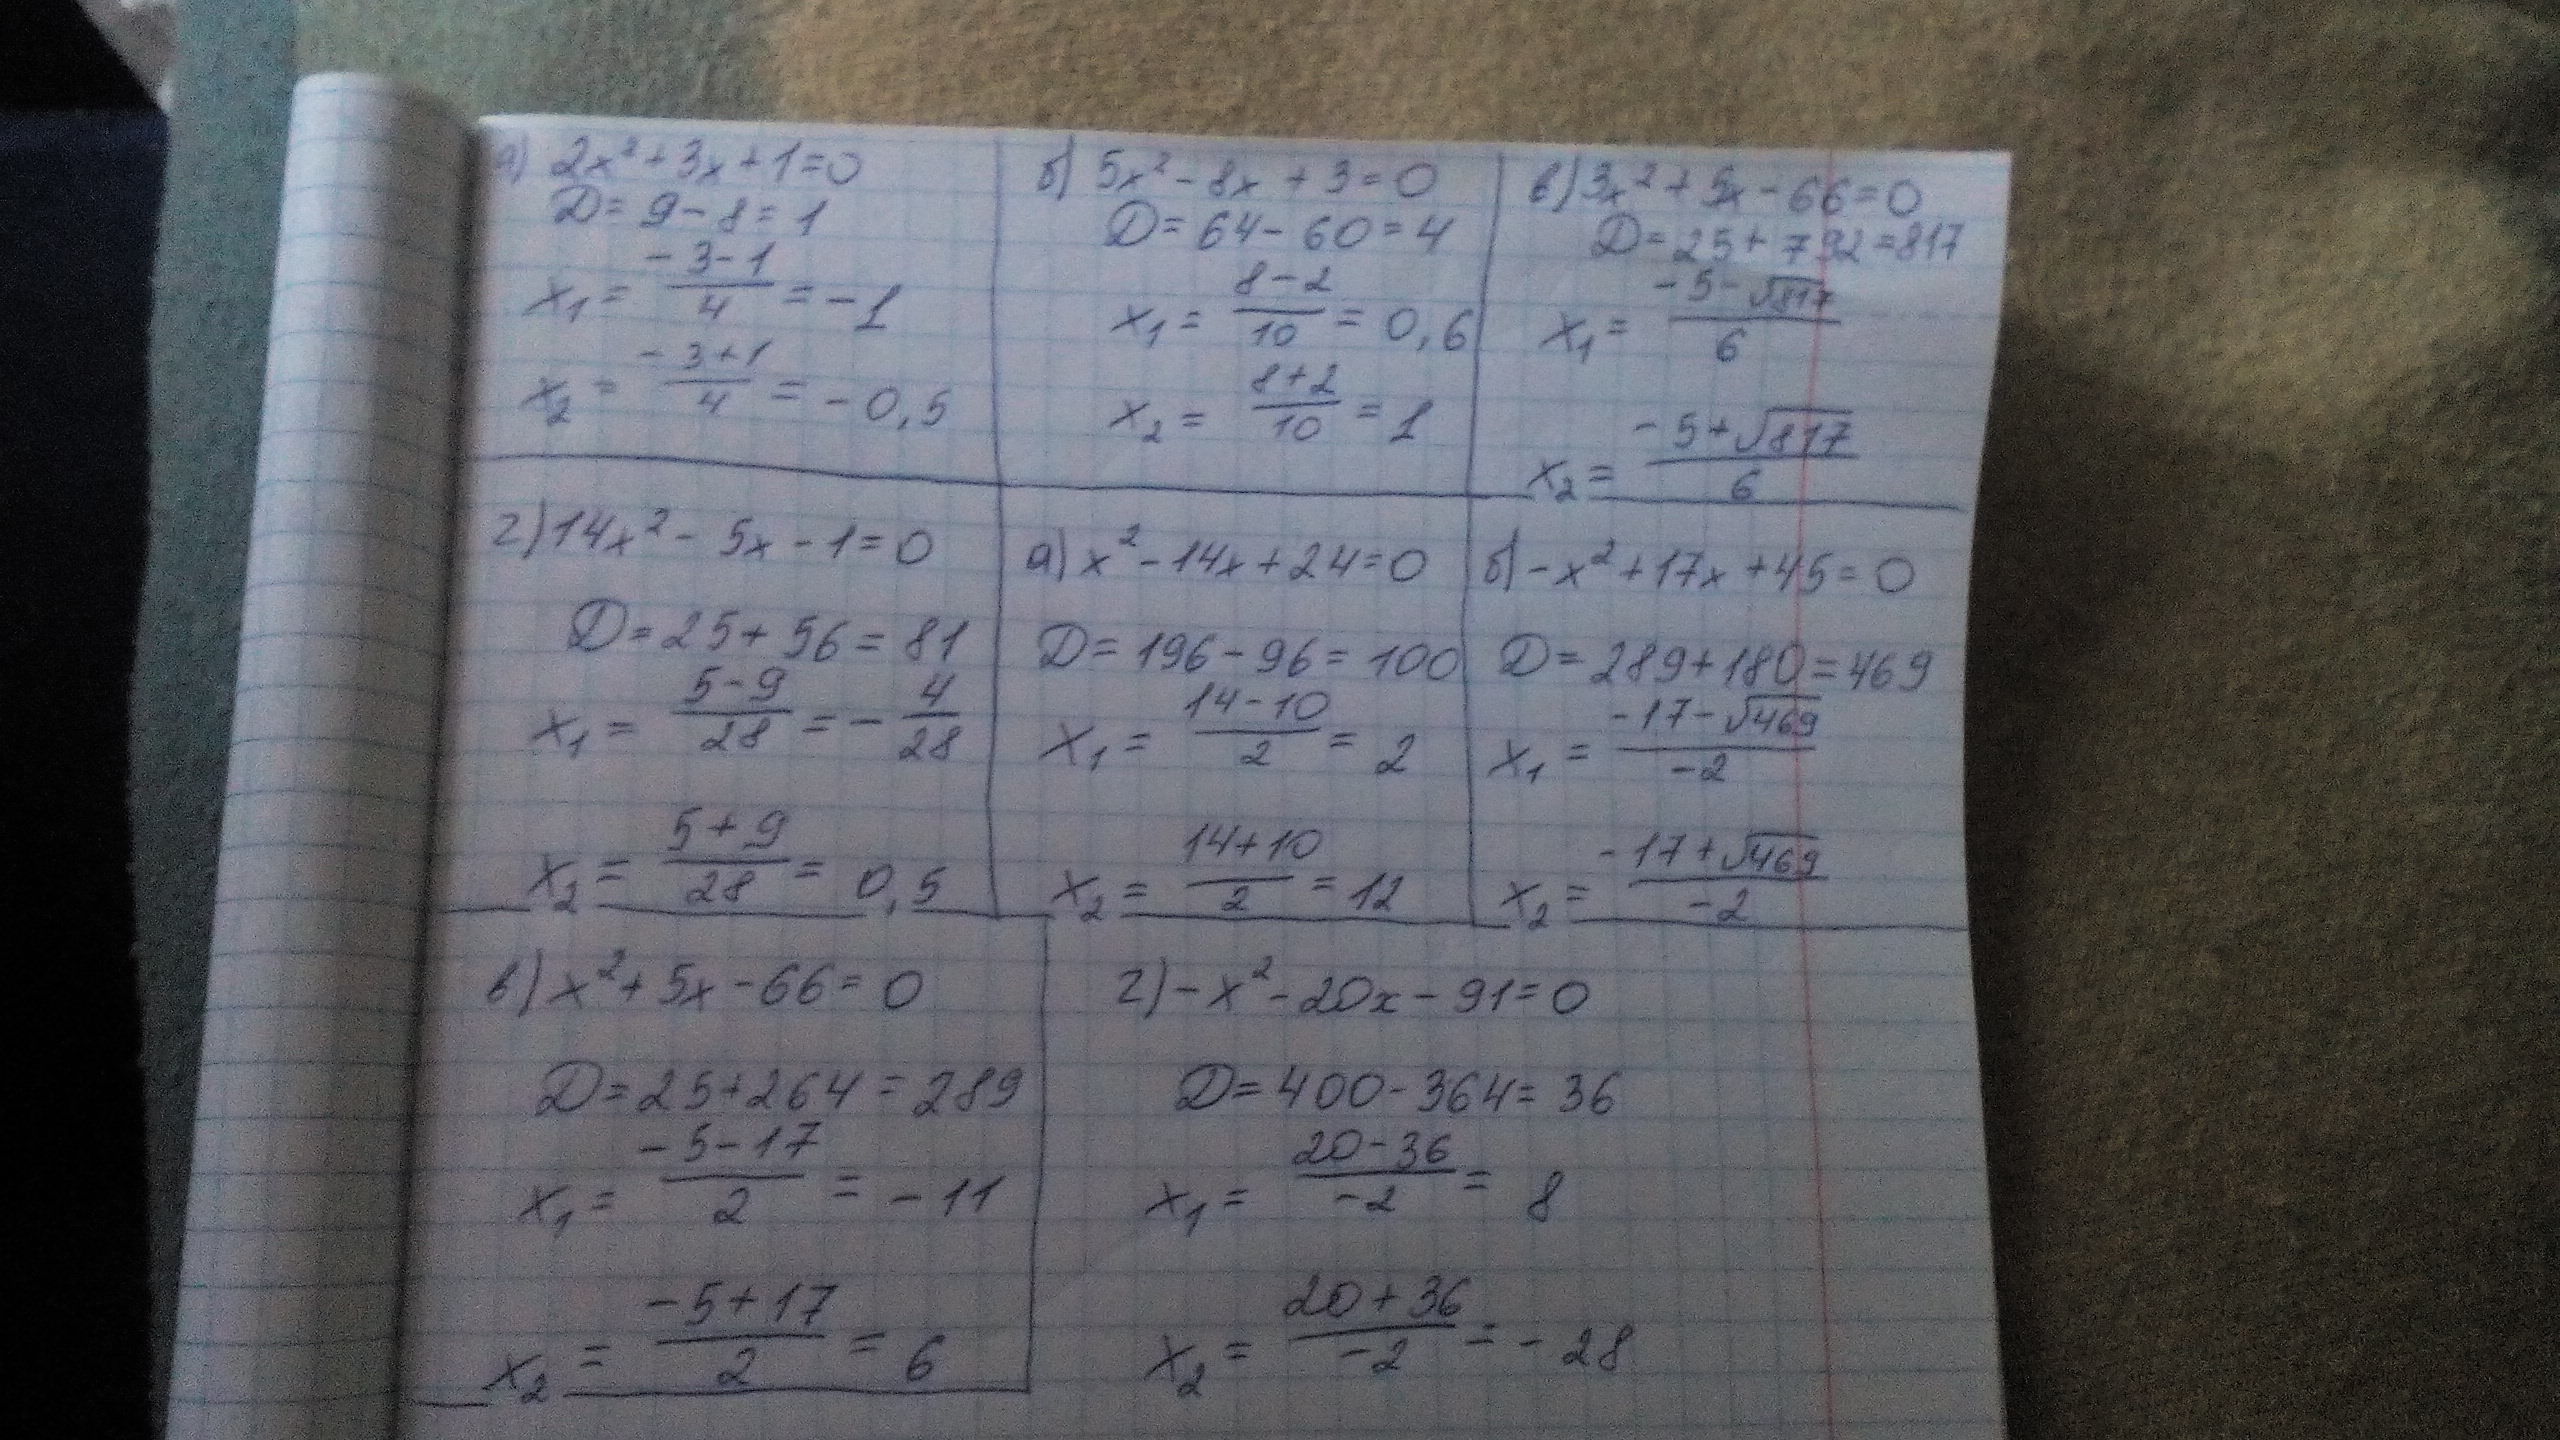 а) 2x² + 3x + 1 = 0
D = 9 - 8 = 1
x₁ = (-3-1)/4 = -1
x₂ = (-3+1)/4 = -0,5
б) 5x² - 8x + 3 = 0
D = 64 - 60 = 4
x₁ = (8-2)/10 = 0,6
x₂ = (8+2)/10 = 1
в) 3x² + 5x - 66 = 0
D = 25 + 792 = 817
x₁ = (-5-√817)/6
x₂ = (-5+√817)/6
г) 14x² - 5x - 1 = 0
D = 25 + 56 = 81
x₁ = (5-9)/28 = -4/28
x₂ = (5+9)/28 = 0,5
а) x² - 14x + 24 = 0
D = 196 - 96 = 100
x₁ = (14-10)/2 = 2
x₂ = (14+10)/2 = 12
б) -x² + 17x + 45 = 0
D = 289 + 180 = 469
x₁ = (-17-√469)/-2
x₂ = (-17+√469)/-2
в) x² + 5x - 66 = 0
D = 25 + 264 = 289
x₁ = (-5-17)/2 = -11
x₂ = (-5+17)/2 = 6
г) -x² - 20x - 91 = 0
D = 400 - 364 = 36
x₁ = (20-36)/-2 = 8
x₂ = (20+36)/-2 = -28